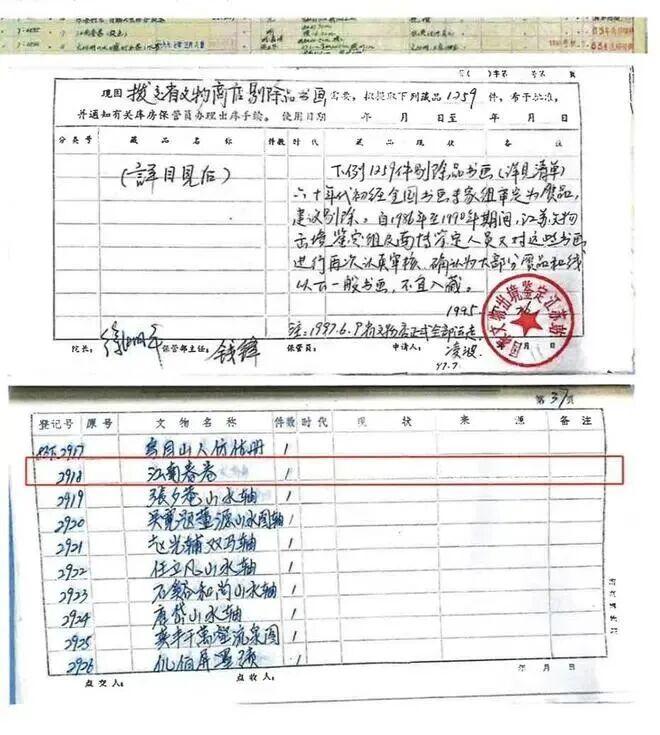 现因拨交省文物商店剔除品书画需要，拟提取下列藏品1259件，希予批准，
并通知有关库房保管员办理出库手续。 使用日期 年 月 日至 年 月 日
分类号 藏品名称 件数 时代 藏品现状 备注
(详目见后)
下列1259件剔除品书画(详见清单)
六十年代初经全国书画专家组审定为赝品，
建议剔除。自1986年至1990年期间，江苏文物
出境鉴定组及南博鉴定人员又对这些书画
进行再次认真审核、确认为大部分赝品和线
以下一般书画，不宜入藏。
1995.
注：1997.6.9省文物店正式全部运走，
院长： 保管部主任： 钱锋 保管员： 申请人： 凌波
97.7.
第37页
登记号 原号 文物名称 件数 时代 现状 来源 备注
2917 乌目山人仿倪册 1
2918 江南春卷 1
2919 张夕庵山水轴 1
2920 吴宽题董源山水图轴 1
2921 赵光辅双马轴 1
2922 任立凡山水轴 1
2923 石谿和尚山水轴 1
2924 唐岱山水轴 1
2925 龚半千万壑流泉图 1
2926 仇伯屏墨迹 1
点交人： 点收人： 年 月 日